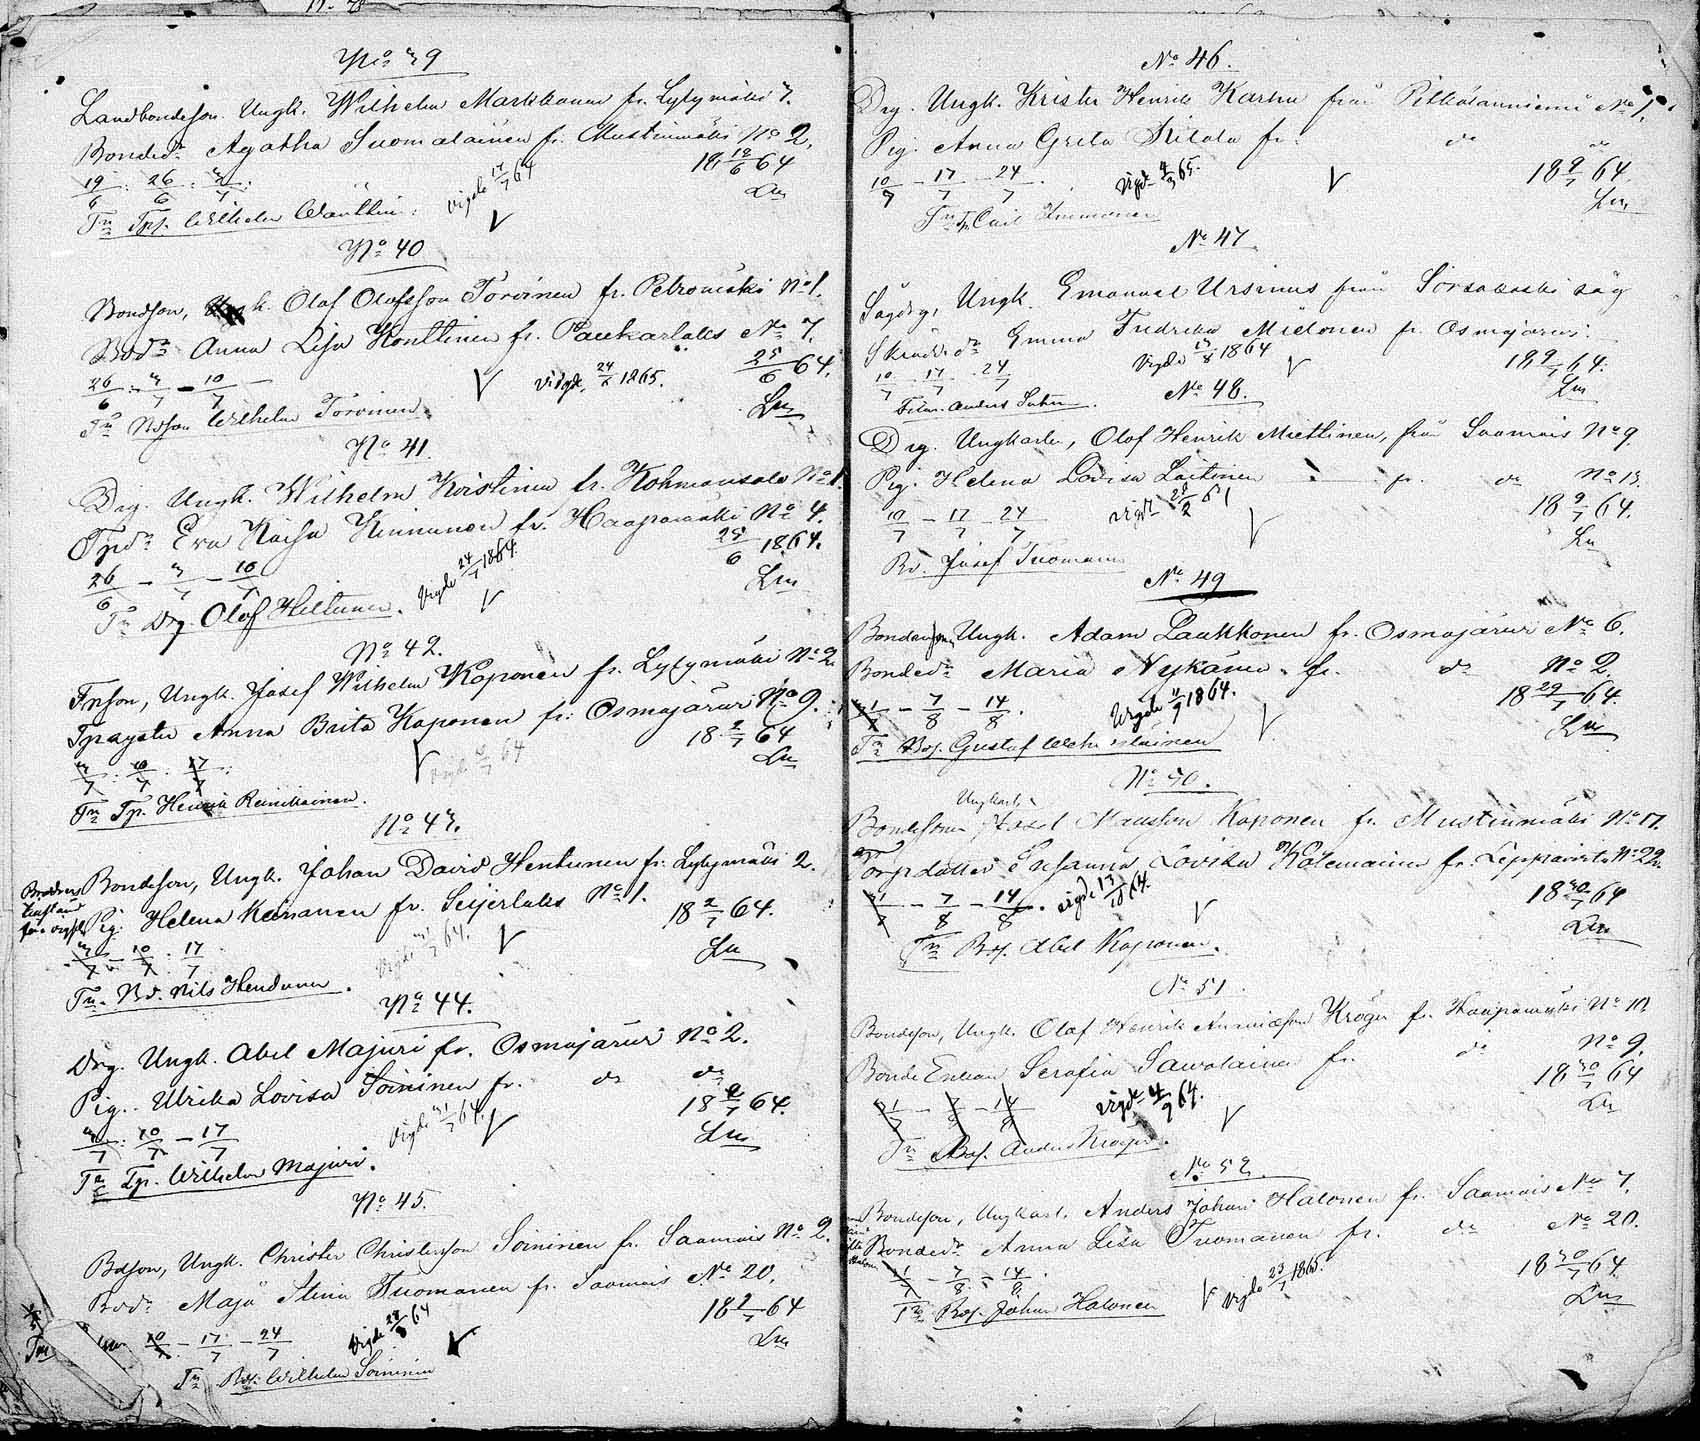 No 39
Landbondeson Ungk. Wilhelm Markkanen fr. Lylymäki 7.
Bonded. Agatha Suomalainen fr. Mustinmäki No 2.
19/6 : 26/6 : 3/7 : Vigde 17/7 64 18 18/6 64
Tn Tps. Wilhelm Wänttin. Lm
No 40
Bondson, Ungk. Olof Olofsson Torvinen fr. Petromäki No 1.
Bodr Anna Lisa Konttinen fr. Paukarlaks No 7.
26/6 - 3/7 - 10/7 Vigde 24/6 1865. 25/6 64.
Tn Bdson Wilhelm Torvinen. Lm
No 41.
Drg. Ungk. Wilhelm Koistinen fr. Kohmansalo No 1.
Tpdr Eva Kaisa Kinnunen fr. Haapamäki No 4.
26/6 - 3/7 - 10/7 Vigde 24/7 1864. 25/6 1864.
Tn Drg. Olof Hiltunen. Lm
No 42.
Tpson, Ungk. Josef Wilhelm Koponen fr. Lylymäki No 2.
Tpayste Anna Brita Koponen fr. Osmajärvi No 9.
3/7 : 10/7 : 17/7 : Vigde /7 64 18 2/7 64
Tn Tp. Henrik Reinikainen. Lm
No 43.
Bondeson, Ungk. Johan David Hentunen fr. Lylymäki 2.
Pig. Helena Keinänen fr. Seijerlaks No 1.
3/7 - 10/7 : 17/7 Vigde 31/7 64. 18 2/7 64.
Tn. Bd. Nils Hendunen. Lm
No 44.
Drg. Ungk. Abel Majuri fr. Osmajärvi No 2.
Pig. Ulrika Lovisa Soininen fr. do do
3/7 : 10/7 - 17/7 Vigde 31/7 64. 18 2/7 64.
Tn Tp. Wilhelm Majuri. Lm
No 45.
Bdson, Ungk. Christer Christersson Soininen fr. Saamais No 2.
Bodr Maja Stina Tuomanen fr. Saamais No 20.
10/7 - 17/7 - 24/7 Vigde 28/8 64 18 9/7 64
Tn Bds. Wilhelm Soininen Lm
No 46.
Drg. Ungk. Krister Henrik Karhu från Pitkälänniemi No 1.
Pig. Anna Greta Kitola fr. do do
10/7 - 17/7 - 24/7. Vigde 4/3 65. 18 9/7 64.
Tn Tp Carl Immonen Lm
No 47.
Sågdrg, Ungk. Emanuel Ursinus från Sorsakoski såg
Skrädd. dr Emma Fredrika Mielonen fr. Osmajärvi.
10/7 - 17/7 - 24/7 Vigde 13/8 1864 18 9/7 64.
Anders Lm
No 48.
Drg. Ungkarlen, Olof Henrik Miettinen, från Saamais No 9
Pig. Helena Lovisa Laitinen fr. do No 13.
10/7 - 17/7 - 24/7 Vigde 18 9/7 64.
Bd. Josef Tuomanen Lm
No 49
Bondeson, Ungk. Adam Laukkonen fr. Osmajärvi No 6.
Bondedr Maria Nykänen fr. do No 2.
31/7 - 7/8 - 14/8. Vigde 11/9 1864. 18 29/7 64.
Tn Bds. Gustaf Lm
No 50.
Ungkarl.
Bondeson Josef Maunsson Koponen fr. Mustinmäki No 17.
Torpdotter Susanna Lovisa Kolemainen fr. Leppävirta No 22.
31/7 - 7/8 - 14/8. Vigde 13/10 64. 18 30/7 64
Tn Bds. Abel Koponen. Lm
No 51.
Bondeson, Ungk. Olof Henrik Kröger fr. Haapamäki No 10
Bonde Enkan Serafia Sawolainen fr. do No 9.
31/7 - 7/8 - 14/8 Vigde 4/9 64. 18 30/7 64
Tn Bds. Anders Kröger. Lm
No 52.
Bondeson, Ungkarl. Anders Johan Halonen fr. Saamais No 7.
Bondedr Anna Lisa Tuomanen fr. do No 20.
31/7 - 7/8 - 14/8. Vigde 23/7 1865. 18 30/7 64.
Tn Bds. Johan Halonen Lm